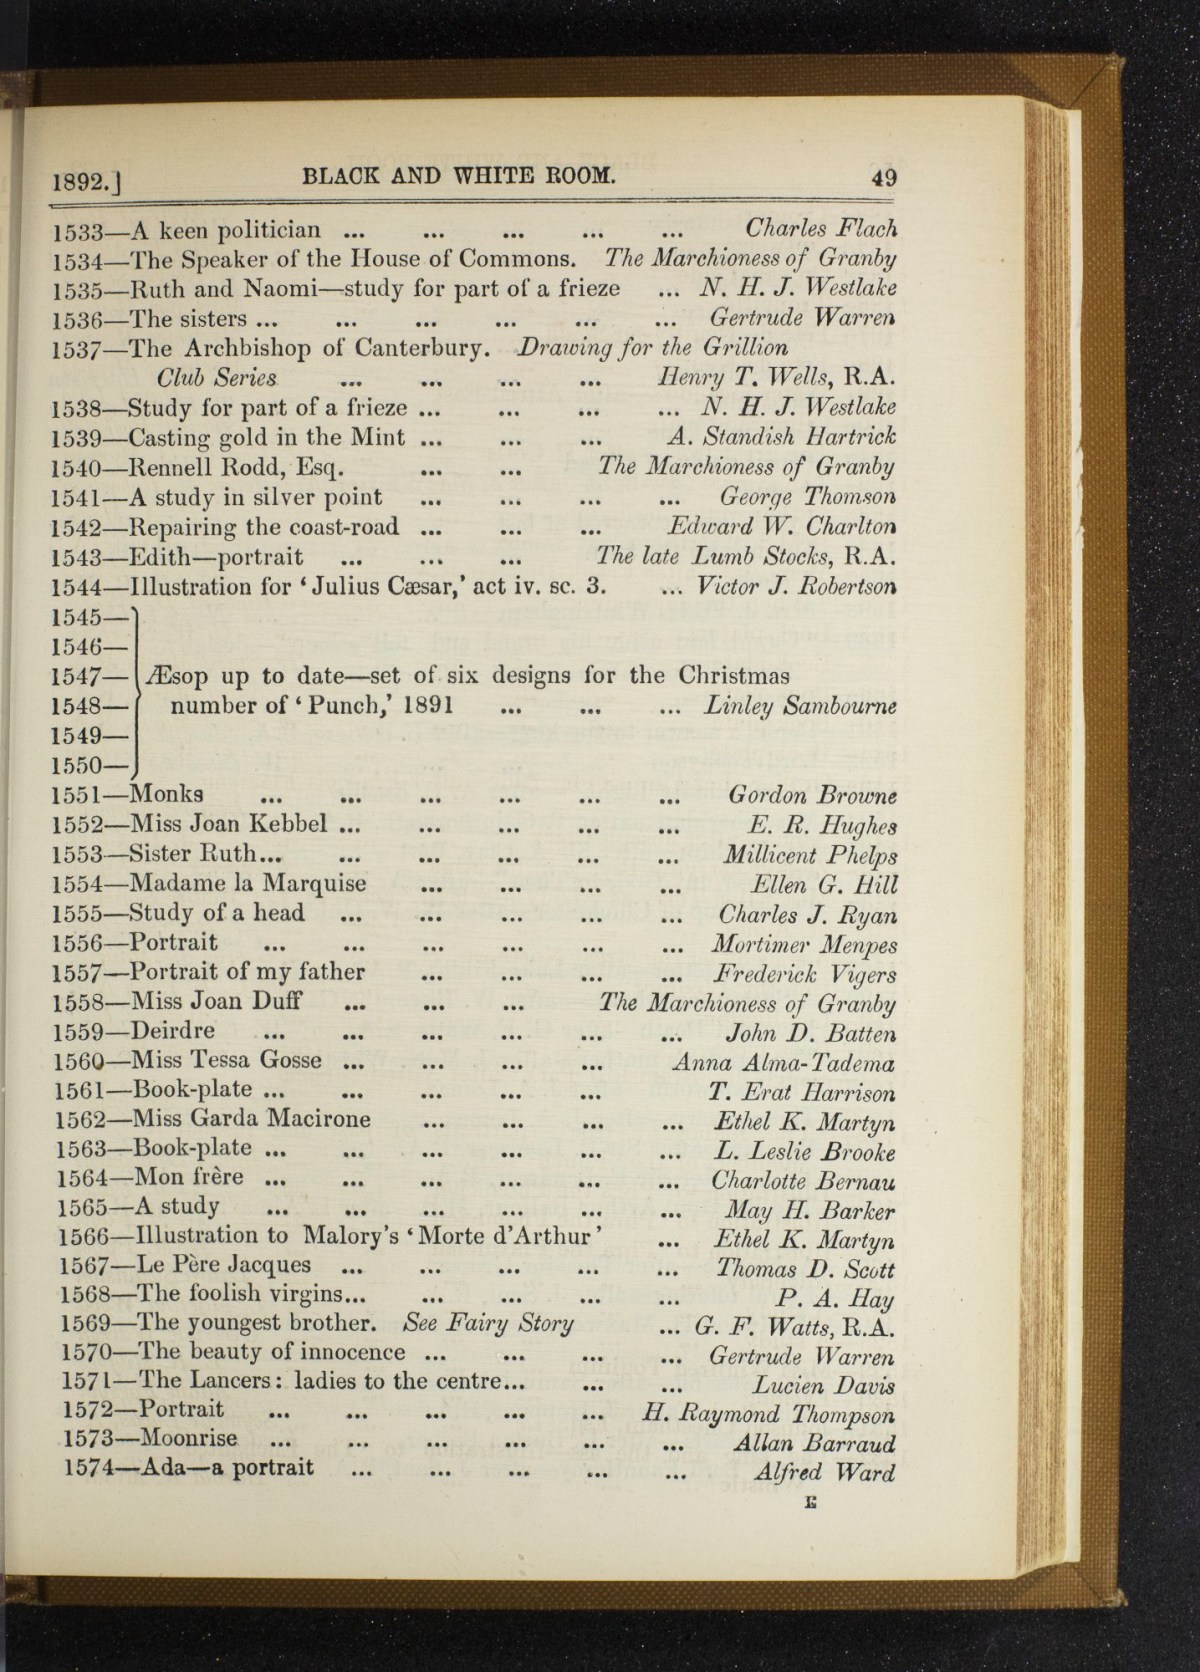 1892.] BLACK AND WHITE ROOM. 49
1533—A keen politician ... ... ... ... ... Charles Flach
1534—The Speaker of the House of Commons. The Marchioness of Granby
1535—Ruth and Naomi—study for part of a frieze ... N. H. J. Westlake
1536—The sisters ... ... ... ... ... ... Gertrude Warren
1537—The Archbishop of Canterbury. Drawing for the Grillion
Club Series ... ... ... ... Henry T. Wells, R.A.
1538—Study for part of a frieze ... ... ... ... N. H. J. Westlake
1539—Casting gold in the Mint ... ... ... A. Standish Hartrick
1540—Rennell Rodd, Esq. ... ... The Marchioness of Granby
1541—A study in silver point ... ... ... ... George Thomson
1542—Repairing the coast-road ... ... ... Edward W. Charlton
1543—Edith—portrait ... ... ... The late Lumb Stocks, R.A.
1544—Illustration for ‘Julius Cæsar,’ act iv. sc. 3. ... Victor J. Robertson
1545—
1546—
1547— Æsop up to date—set of six designs for the Christmas
1548— number of ‘Punch,’ 1891 ... ... ... Linley Sambourne
1549—
1550—
1551—Monks ... ... ... ... ... ... Gordon Browne
1552—Miss Joan Kebbel ... ... ... ... ... E. R. Hughes
1553—Sister Ruth... ... ... ... ... ... Millicent Phelps
1554—Madame la Marquise ... ... ... ... Ellen G. Hill
1555—Study of a head ... ... ... ... ... Charles J. Ryan
1556—Portrait ... ... ... ... ... ... Mortimer Menpes
1557—Portrait of my father ... ... ... ... Frederick Vigers
1558—Miss Joan Duff ... ... ... The Marchioness of Granby
1559—Deirdre ... ... ... ... ... ... John D. Batten
1560—Miss Tessa Gosse ... ... ... ... Anna Alma-Tadema
1561—Book-plate ... ... ... ... ... T. Erat Harrison
1562—Miss Garda Macirone ... ... ... ... Ethel K. Martyn
1563—Book-plate ... ... ... ... ... ... L. Leslie Brooke
1564—Mon frère ... ... ... ... ... ... Charlotte Bernau
1565—A study ... ... ... ... ... ... May H. Barker
1566—Illustration to Malory’s ‘Morte d’Arthur’ ... Ethel K. Martyn
1567—Le Père Jacques ... ... ... ... ... Thomas D. Scott
1568—The foolish virgins... ... ... ... ... P. A. Hay
1569—The youngest brother. See Fairy Story ... G. F. Watts, R.A.
1570—The beauty of innocence ... ... ... ... Gertrude Warren
1571—The Lancers: ladies to the centre... ... ... Lucien Davis
1572—Portrait ... ... ... ... ... H. Raymond Thompson
1573—Moonrise ... ... ... ... ... ... Allan Barraud
1574—Ada—a portrait ... ... ... ... ... Alfred Ward
E